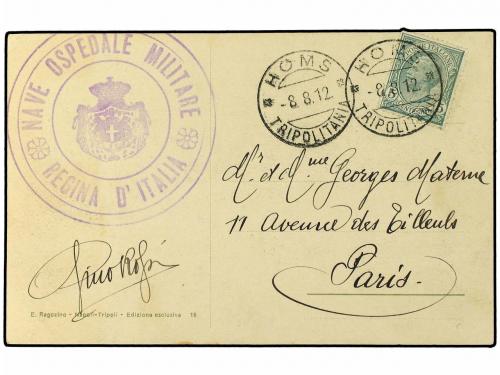 NAVE OSPEDALE MILITARE
REGINA D'ITALIA
HOMS
-8.8.12
TRIPOLITANIA
HOMS
-8.8.12
TRIPOLITANIA
Mr et Mme Georges Materne
11 Avenue des Tilleuls
Paris.
Gino Rossi
E. Ragozino - Napoli-Tripoli - Edizione esclusiva 16